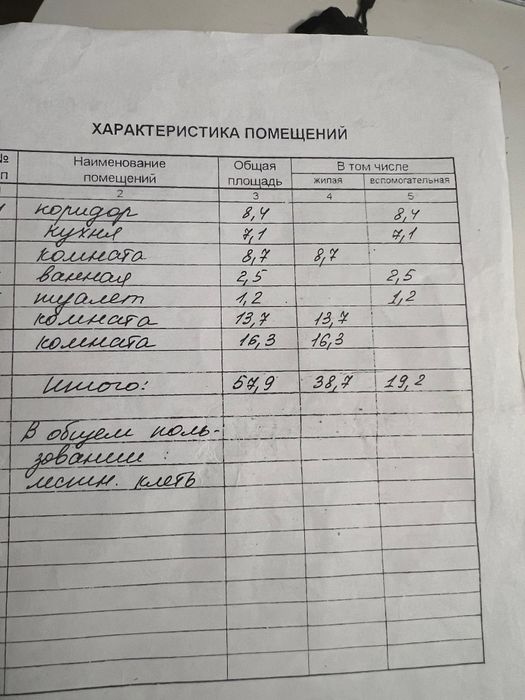 ХАРАКТЕРИСТИКА ПОМЕЩЕНИЙ
№ Наименование Общая В том числе
п помещений площадь жилая вспомогательная
2 3 4 5
коридор 8,4 8,4
кухня 7,1 7,1
комната 8,7 8,7
ванная 2,5 2,5
туалет 1,2 1,2
комната 13,7 13,7
комната 16,3 16,3
Итого: 57,9 38,7 19,2
В общем поль-
зовании :
лестн. клеть